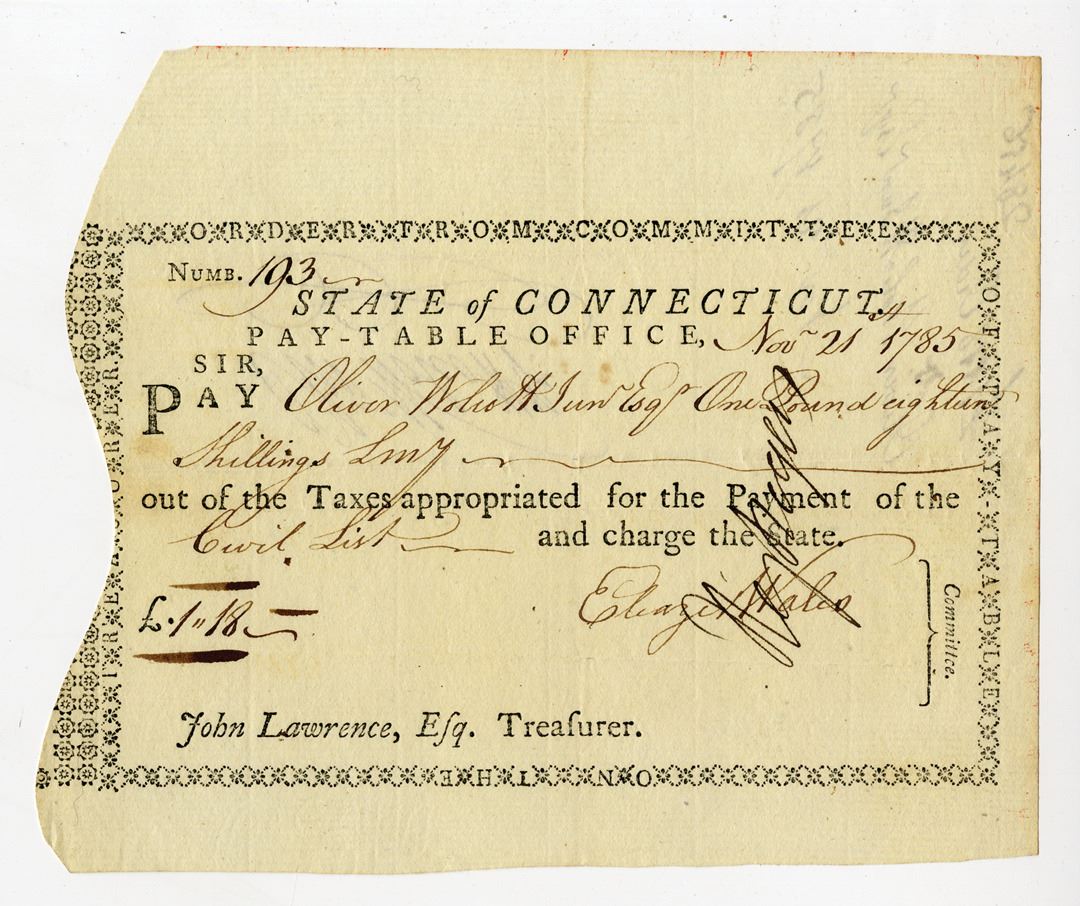 ORDER FROM COMMITTEE
OF PAY-TABLE
ON THE
TREASURER.
NUMB. 193
STATE of CONNECTICUT.
PAY-TABLE OFFICE, Novr 21st 1785
SIR,
PAY Oliver Wolcott Junr Esqr One Pound eighteen
Shillings LMy
out of the Taxes appropriated for the Payment of the
Civil List and charge the State.
Eleazer Wales
Committee.
£.1"18
John Lawrence, Esq. Treaſurer.